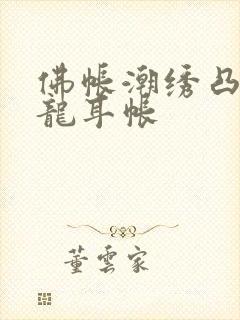 佛帳潮绣凸
龍耳帳
董雲家